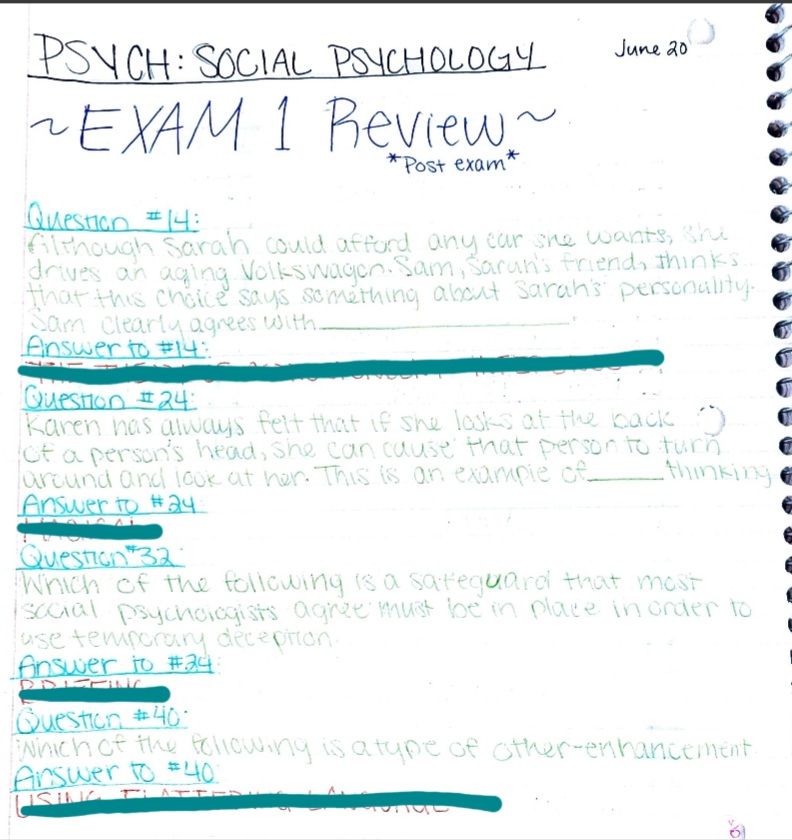 PSYCH: SOCIAL PSYCHOLOGY
June 20
~EXAM 1 Review~
*Post exam*
Question #14:
Although Sarah could afford any car she wants, she
drives an aging Volkswagon. Sam, Sarah's friend, thinks
that this choice says something about Sarah's personality.
Sam clearly agrees with____________.
Answer to #14:
Question #24:
Karen has always felt that if she looks at the back
of a person's head, she can cause that person to turn
around and look at her. This is an example of_____thinking
Answer to #24
Question #32:
Which of the following is a safeguard that most
social psychologists agree must be in place in order to
use temporary deception.
Answer to #24:
Question #40:
Which of the following is a type of other-enhancement
Answer to #40: